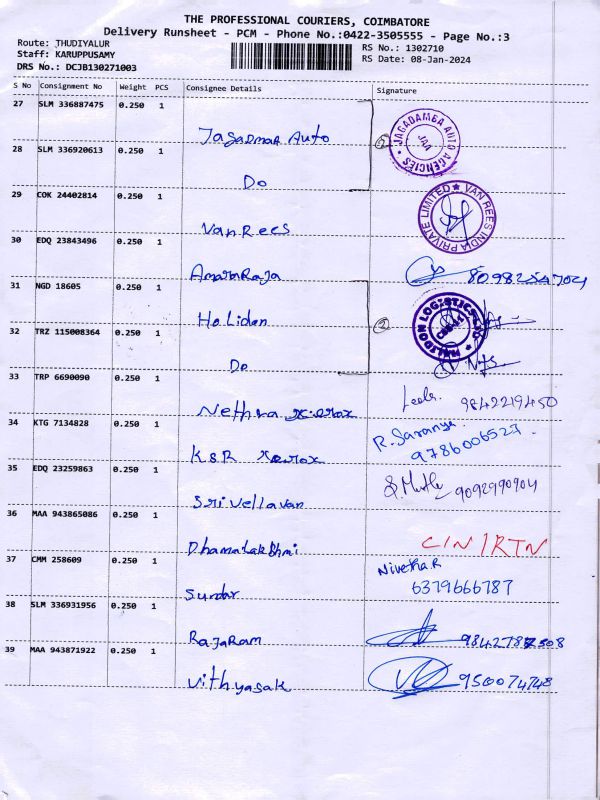 THE PROFESSIONAL COURIERS, COIMBATORE
Delivery Runsheet - PCM - Phone No.:0422-3505555 - Page No.:3
Route: THUDIYALUR
Staff: KARUPPUSAMY
DRS No.: DCJB130271003
RS No.: 1302710
RS Date: 08-Jan-2024
S No Consignment No Weight PCS Consignee Details Signature
27 SLM 336887475 0.250 1
Jagadmaa Auto
JAGADAMBA AUTO AGENCIES
28 SLM 336920613 0.250 1
Do
29 COK 24402814 0.250 1
VanRees
VAN REES INDIA PRIVATE LIMITED
30 EDQ 23843496 0.250 1
AmaraRaja
31 NGD 18605 0.250 1
Holidon
32 TRZ 115008364 0.250 1
Do
33 TRP 6690090 0.250 1
Nethra xerox
Leela. 9842219450
34 KTG 7134828 0.250 1
K&R xerox
R. Saranya.
9786006527.
35 EDQ 23259863 0.250 1
Sri Vellavan
9092990904
36 MAA 943865086 0.250 1
C/N/RTN
37 CMM 258609 0.250 1
Sundar
Nivetha R
6379666787
38 SLM 336931956 0.250 1
RajaRam
39 MAA 943871922 0.250 1
Vithyasak
950074748